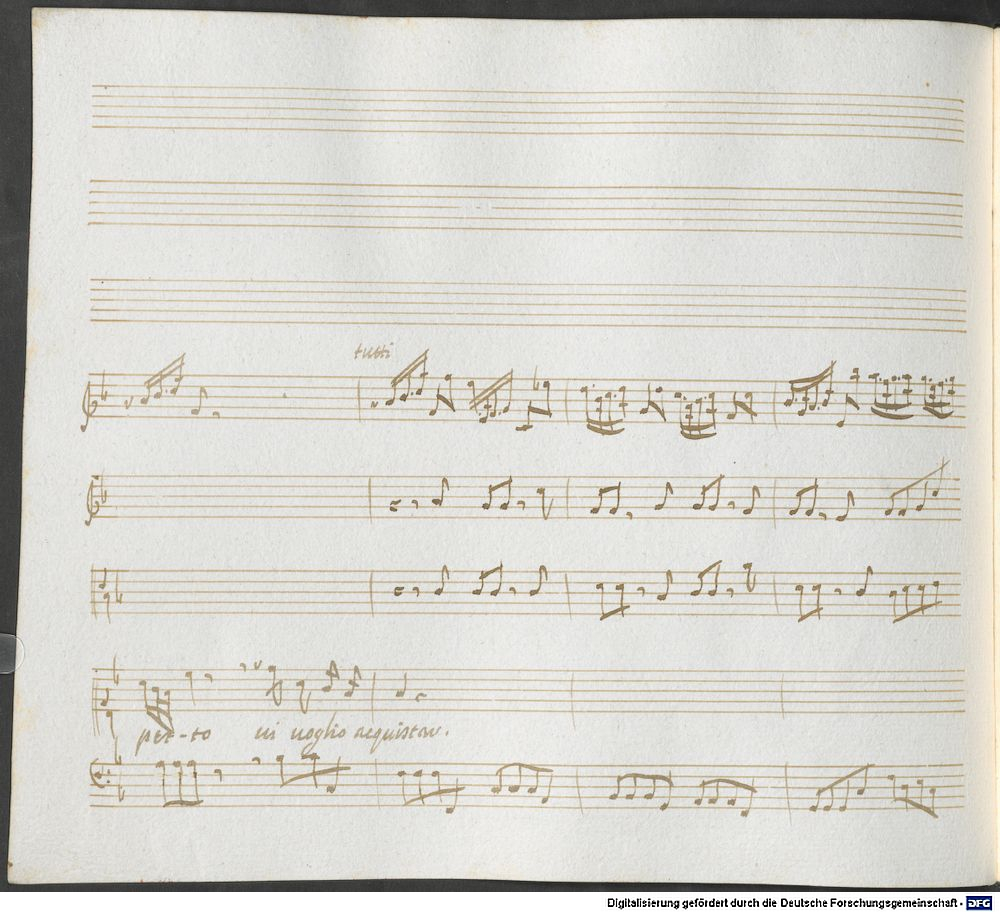 tutti
pet-to ui uoglio acquistar.
Digitalisierung gefördert durch die Deutsche Forschungsgemeinschaft - DFG